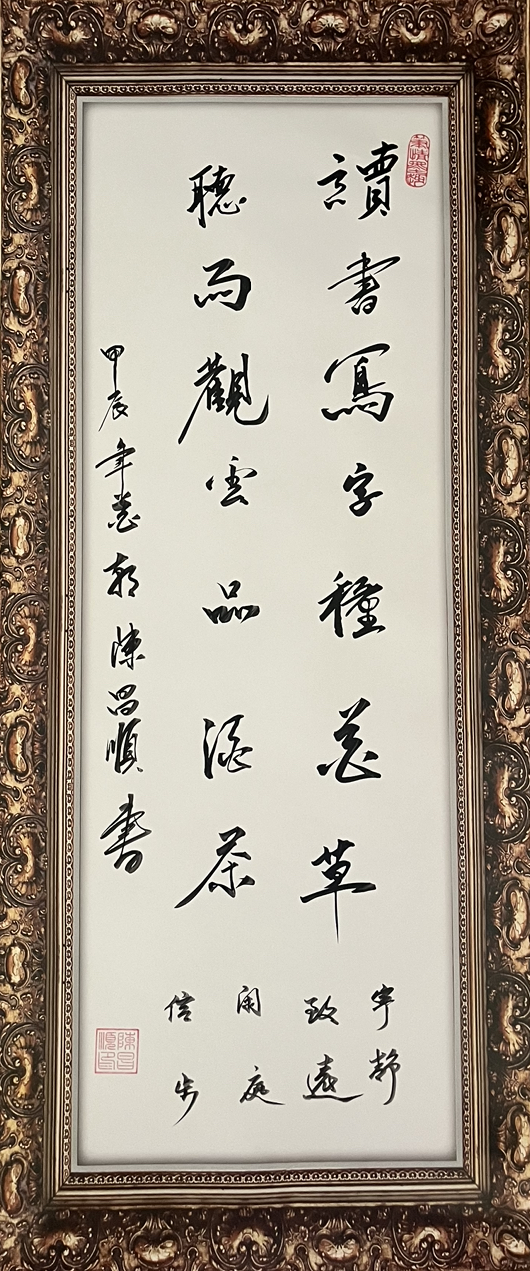 讀書寫字種花草
聽雨觀雲品酒茶
寧靜
致遠
閑庭
信步
甲辰年花朝陳昌順書
陳昌順印